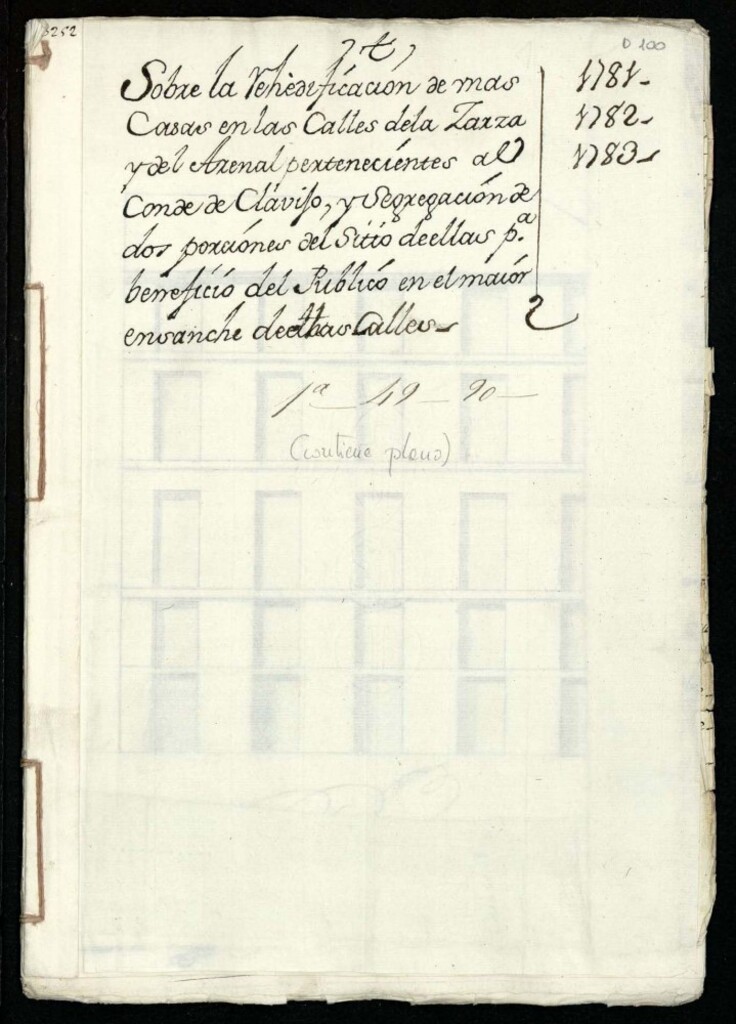 3252
D 100
Sobre la Rehedificación de mas
Casas en las Calles dela Zarza
y del Arenal pertenecientes al
Conde de Clavijo, y Segregación de
dos porciónes del Sitio de ellas p.ª
beneficio del Publicó en el maior
ensanche de dhas Calles
1781
1782
1783
2
1ª 49 90
(contiene plano)